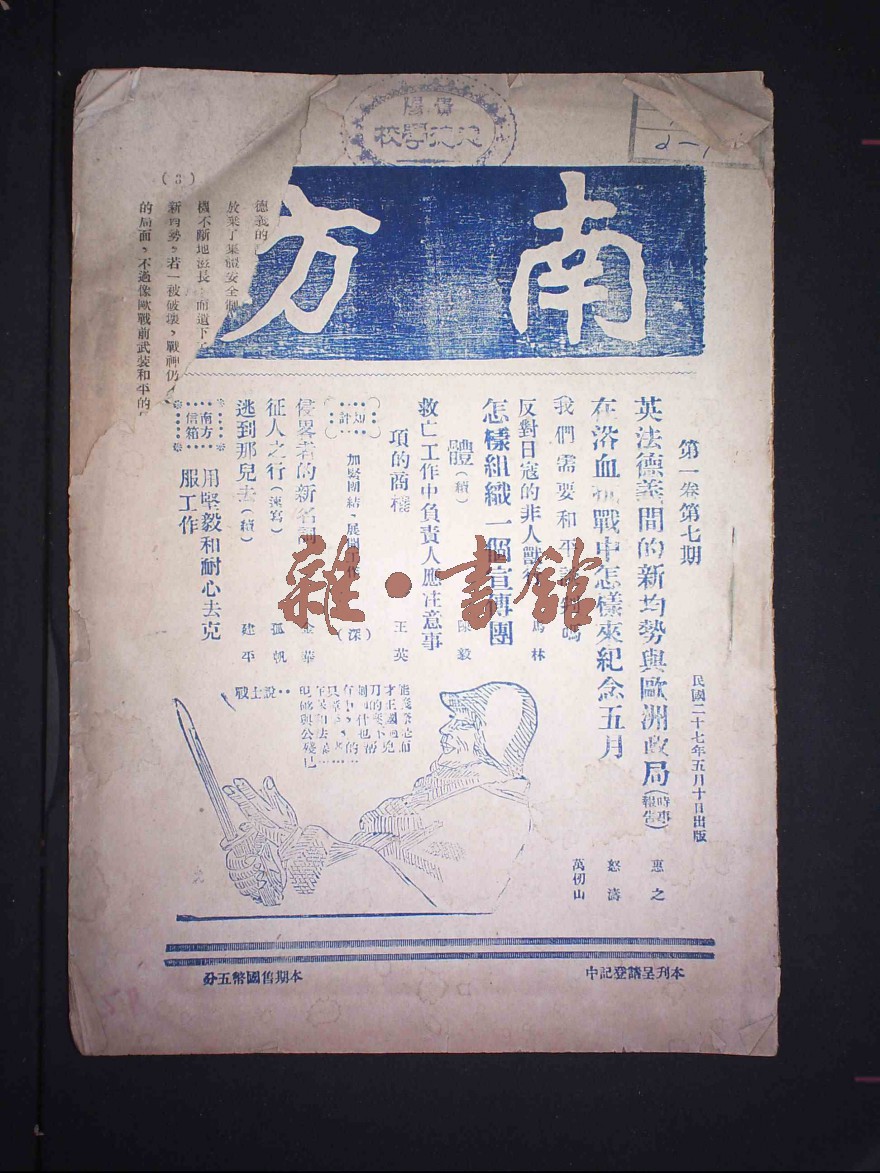 南方
第一卷第七期
民國二十七年五月十日出版
英法德義間的新均勢與歐洲政局（時事報告） 惠之
在浴血抗戰中怎樣來紀念五月 怒濤
我們需要和平談判嗎 萬仞山
反對日寇的非人獸行 馬林
怎樣組織一個宣傳團
體（續） 陳毅
救亡工作中負責人應注意事
項的商榷 王英
短計
加緊團結、展開工作 （深）
侵略者的新名詞 金華
征人之行（速寫） 孤帆
逃到那兒去（續） 建平
南方信箱
用堅毅和耐心去克
服工作
戰士說
本刊呈請登記中
本期售國幣五分
(3)
德義的
放棄了集體安全制
機不斷地滋長 而遺下
新均勢，若一被破壞，戰神仍
的局面，不過像歐戰前武裝和平的
學校
雜·書館